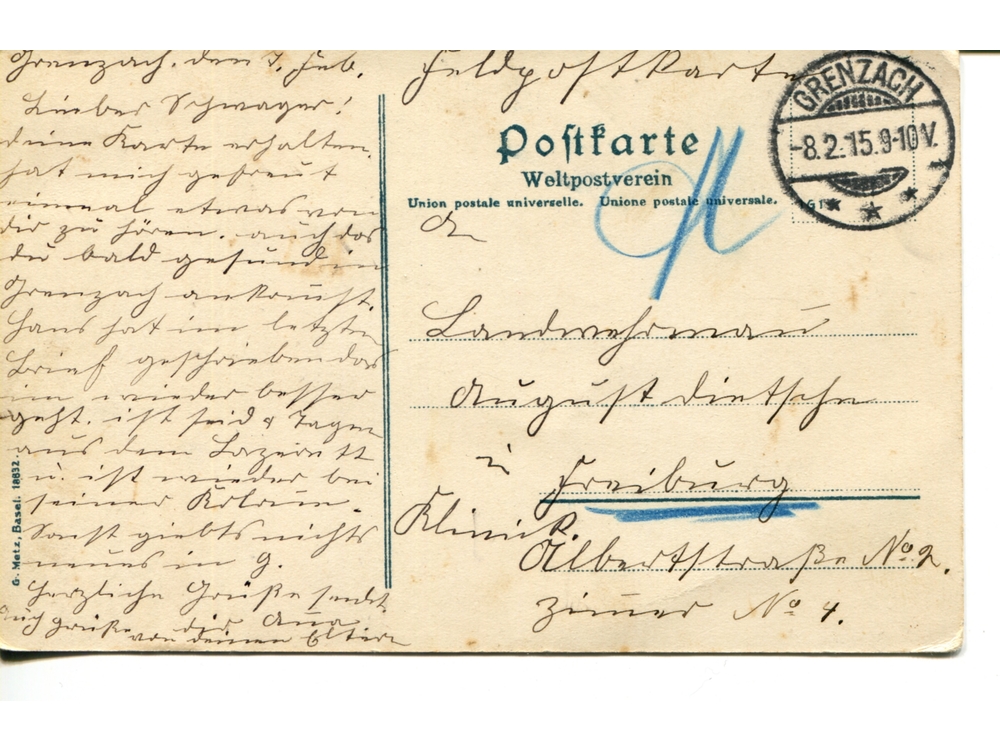 Grenzach, den 7. Feb.
Lieber Schwager!
deine Karte erhalten,
hat mich gefreut
einmal etwas von
dir zu hören. auch das
du bald gesund in
Grenzach ankomst.
Hans hat im letzten
Brief geschrieben das
im wieder besser
geht. ist seid 8 Tagen
aus dem Lazerett
u. ist wieder bei
seiner Kolonne.
Sonst giebts nichts
neues in G.
Herzliche Grüße sendet
dir Ana
Auch grüße von deinen Eltern
G. Metz, Basel. 18832.
Feldpostkarte
Postkarte
Weltpostverein
Union postale universelle. Unione postale universale.
GRENZACH
-8.2.15.9-10V.
An
Landwehrmann
August Dietsche
in Freiburg
Klinik.
Albertstraße No. 2.
Zimmer No 4.